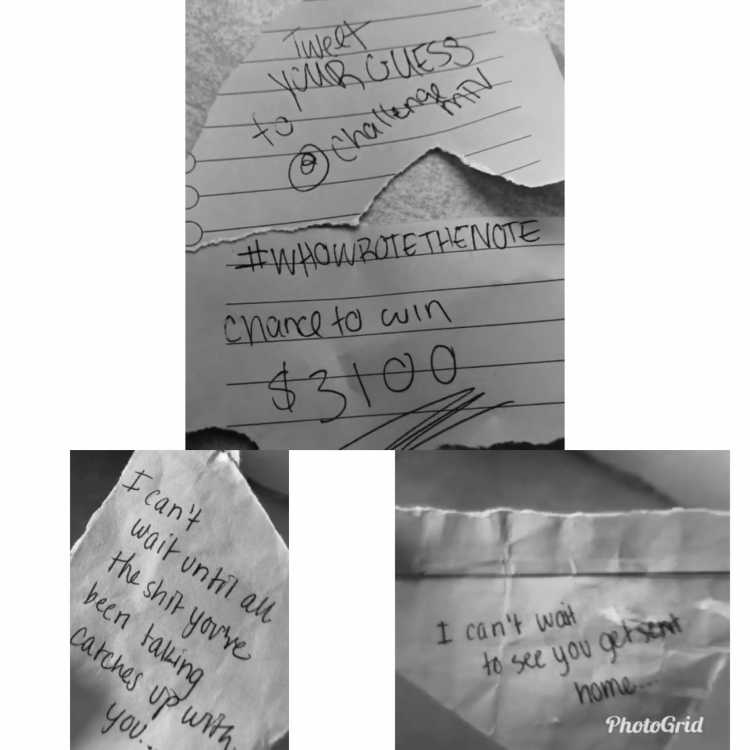 Tweet
YOUR GUESS
to
@challengemtv
#WHOWROTETHENOTE
chance to win
$3100
I can't
wait until all
the shit you've
been talking
catches up with
you...
I can't wait
to see you get sent
home...
PhotoGrid